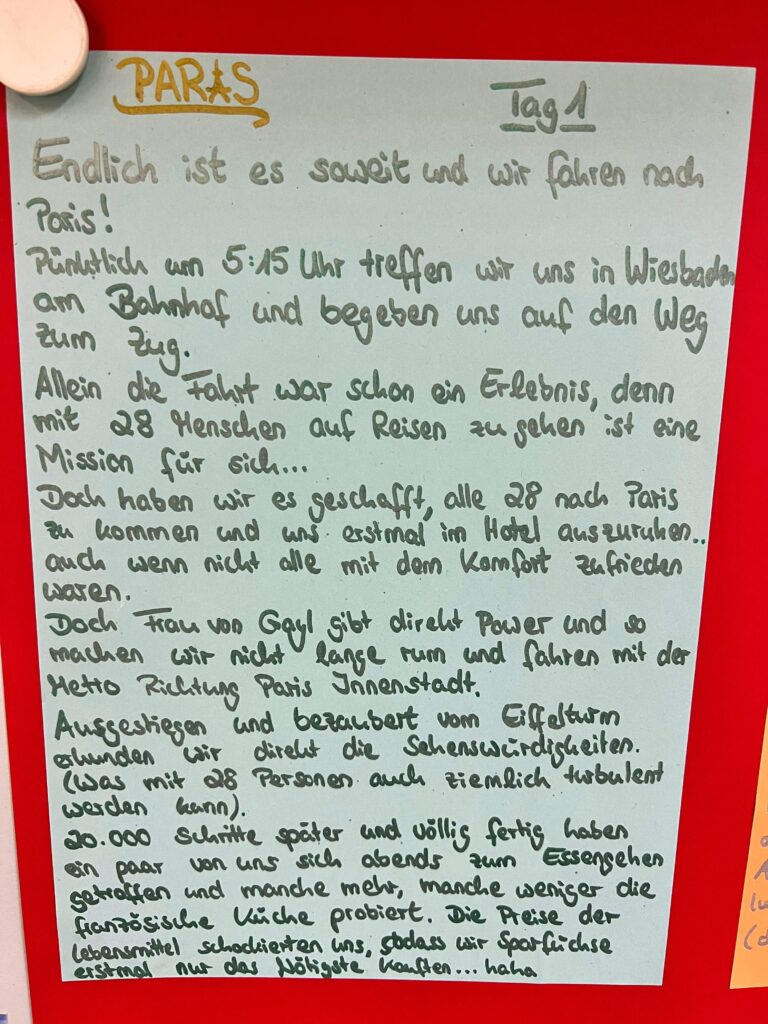 PARIS
Tag 1
Endlich ist es soweit und wir fahren nach
Paris!
Pünktlich um 5:15 Uhr treffen wir uns in Wiesbaden
am Bahnhof und begeben uns auf den Weg
zum Zug.
Allein die Fahrt war schon ein Erlebnis, denn
mit 28 Menschen auf Reisen zu gehen ist eine
Mission für sich...
Doch haben wir es geschafft, alle 28 nach Paris
zu kommen und uns erstmal im Hotel auszuruhen..
auch wenn nicht alle mit dem Komfort zufrieden
waren.
Doch Frau von Gayl gibt direkt Power und so
machen wir nicht lange rum und fahren mit der
Metro Richtung Paris Innenstadt.
Ausgestiegen und bezaubert vom Eiffelturm
erkunden wir direkt die Sehenswürdigkeiten.
(Was mit 28 Personen auch ziemlich turbulent
werden kann).
20.000 Schritte später und völlig fertig haben
ein paar von uns sich abends zum Essengehen
getroffen und manche mehr, manche weniger die
französische Küche probiert. Die Preise der
Lebensmittel schockierten uns, sodass wir Sparfüchse
erstmal nur das Nötigste kauften... haha